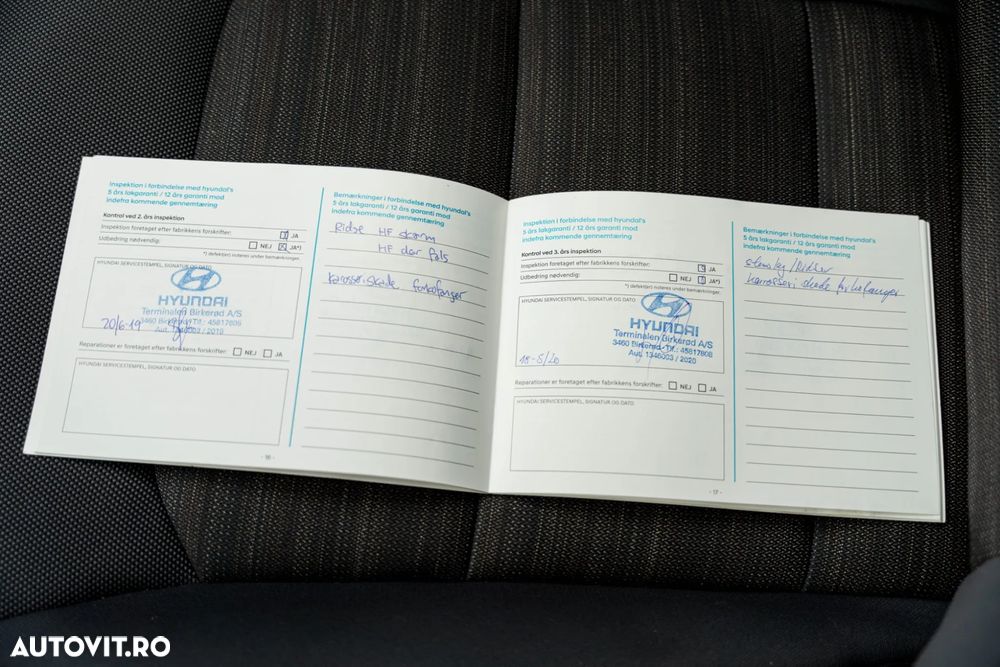 Inspektion i forbindelse med hyundai's
5 års lakgaranti / 12 års garanti mod
indefra kommende gennemtæring
Kontrol ved 2. års inspektion
Inspektion foretaget efter fabrikkens forskrifter: JA
Udbedring nødvendig: NEJ JA*)
*) defekt(er) noteres under bemærkninger.
HYUNDAI SERVICESTEMPEL, SIGNATUR OG DATO
HYUNDAI
Terminalen Birkerød A/S
3460 Birkerød Tlf.: 45817808
Aut. 1346003 / 2010
20/6-19
Reparationer er foretaget efter fabrikkens forskrifter: NEJ JA
HYUNDAI SERVICESTEMPEL, SIGNATUR OG DATO
- 16 -
Bemærkninger i forbindelse med hyundai's
5 års lakgaranti / 12 års garanti mod
indefra kommende gennemtæring
Ridse HF skærm
HF dør
forkofanger
Inspektion i forbindelse med hyundai's
5 års lakgaranti / 12 års garanti mod
indefra kommende gennemtæring
Kontrol ved 3. års inspektion
Inspektion foretaget efter fabrikkens forskrifter: JA
Udbedring nødvendig: NEJ JA*)
*) defekt(er) noteres under bemærkninger.
HYUNDAI SERVICESTEMPEL, SIGNATUR OG DATO
HYUNDAI
Terminalen Birkerød A/S
3460 Birkerød Tlf.: 45817808
Aut. 1346003 / 2020
18-5/20
Reparationer er foretaget efter fabrikkens forskrifter: NEJ JA
HYUNDAI SERVICESTEMPEL, SIGNATUR OG DATO
- 17 -
Bemærkninger i forbindelse med hyundai's
5 års lakgaranti / 12 års garanti mod
indefra kommende gennemtæring
karosseri skade forkofanger
AUTOVIT.RO